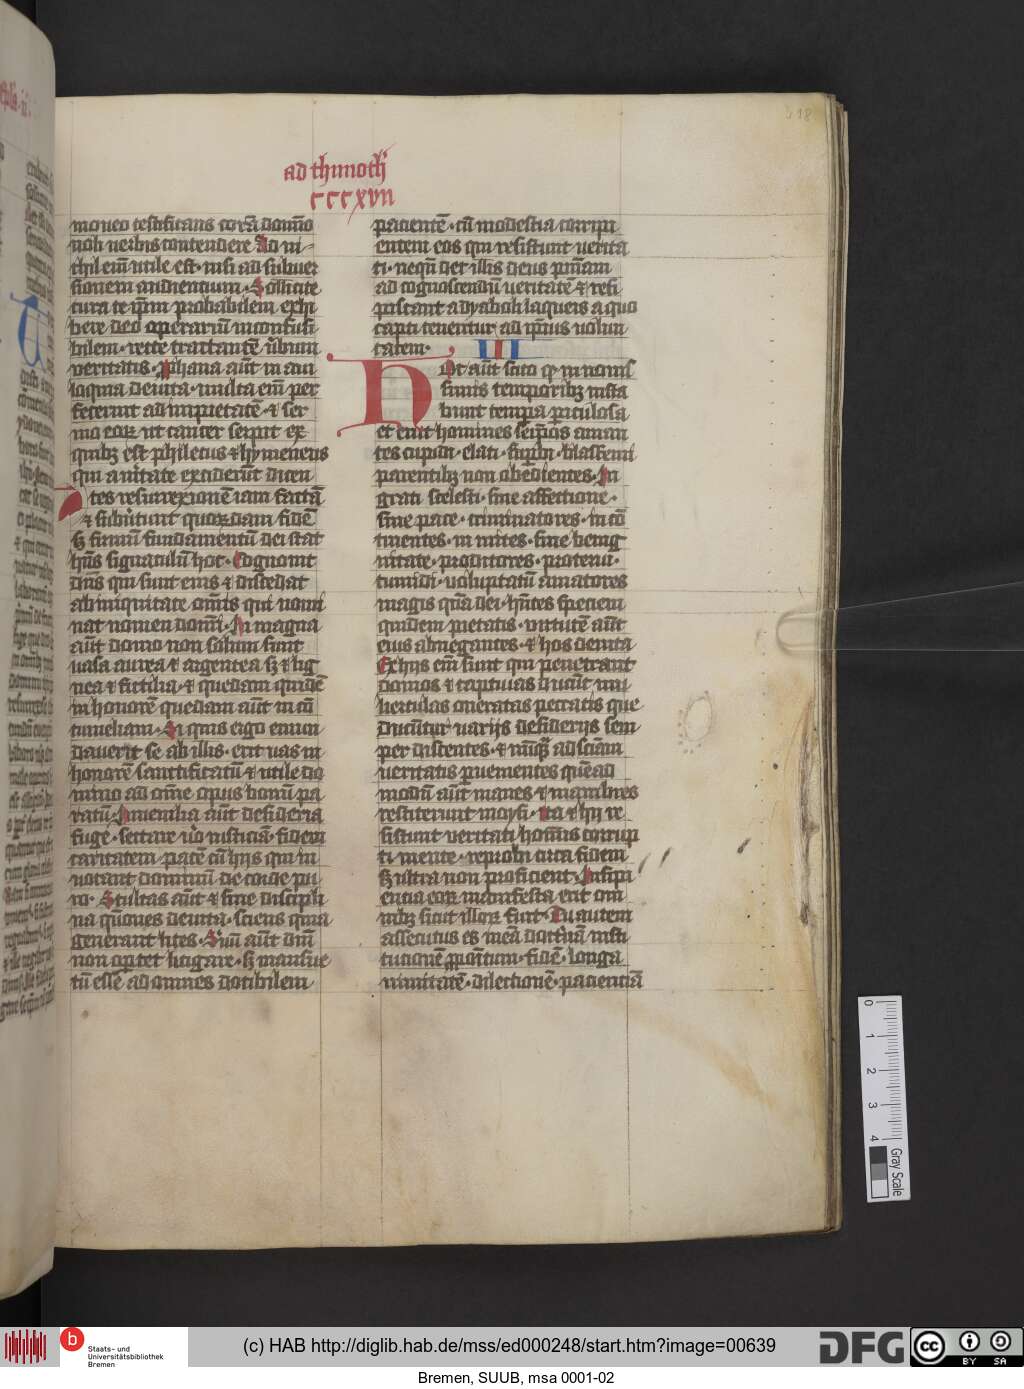 ad thimoth'
cccxvii
moneo testificans corā domīo
noli verbis contendere Ad ni-
chil em̄ utile est· nisi ad subuer
sionem audientium· Sollicite
cura te ip̄m probabilem exhi
bere deo operariū inconfusi
bilem· recte tractantē v̄bum
veritatis· Prhana aūt in ani
loquia deuita· multa em̄ per
ficerunt ad impietatē· et ser
mo eoꝝ ut cancer serpit ex
quibꝫ est philetus et hymeneus
qui a v̄itate exciderūt dicen
tes resurrexionē iam factā
et subv̄tunt quorūdam fidē
sꝫ firmū fundamentū dei stat
hn̄s signaculū hoc· Cognouit
dn̄s qui sunt eius et discedat
ab iniquitate om̄is qui nomi
nat nomen dom̄i· In magna
aūt domo non solum sunt
uasa aurea et argentea sꝫ et lig
nea et fictilia· et quedam quidē
in honorē quedam aūt in cō
tumeliam· Si quis ergo emun
dauerit se ab illis· erit uas in
honorē sanctificatū et utile do
mino ad om̄e opus bonū pa
ratū· Iuuenilia aūt desideria
fuge· sectare v̊o iusticiā· fidem
caritatem pacē cū hijs qui in
uocant dominū de corde pu
ro· Stultas aūt et sine discipli
na q̄ones deuita· sciens quia
generant lites· Seruū aūt dn̄i
non oportet litigare· sꝫ mansue
tū esse ad omnes docibilem
pacientē· cū modestia corripi
entem eos qui resistunt verita
ti· nequn̄ det illis deus pn̄iam
ad cognoscendū veritatē et resi
piscant a dyaboli laqueis a quo
capti tenentur ad ip̄ius volun
tatem·
III
Hoc aūt scito qꝫ in nouis
simis temporibꝫ insta
bunt tempora periculosa
et erunt homines seip̄os aman
tes cupidi· elati· superbi· blasfemi
parentibꝫ non obedientes· In
grati scelesti· sine affectione·
sine pace· criminatores· in cō
tinentes· in mites· sine benig
nitate· proditores· proterui·
tumidi· voluptatū amatores
magis quā dei· hn̄tes speciem
quidem pietatis· virtutē aūt
eius abnegantes· et hos deuita
Ex hijs em̄ sunt qui penetrant
domos et captiuas ducūt mu
lierculas oneratas peccatis que
ducūtur varijs desiderijs sem
per discentes· et nūqꝫ ad sciam
veritatis p̄uenientes quē ad
modū aūt manes et mambres
restiterunt moysi· Ita et hij re
sistunt veritati homīes corrup
ti mente· reprobi circa fidem
sꝫ ultra non proficient· Insipi
encia eoꝝ manifesta erit om
nibꝫ sicut illoꝝ fuit· Tu autem
assecutus es meā doctrinā insti
tucionē propositum· fidē· longa
nimitatē· dilectionē· pacienciā
418
0 1 2 3 4
Gray Scale
b Staats- und
Universitätsbibliothek
Bremen
(c) HAB http://diglib.hab.de/mss/ed000248/start.htm?image=00639
DFG
cc BY SA
Bremen, SUUB, msa 0001-02